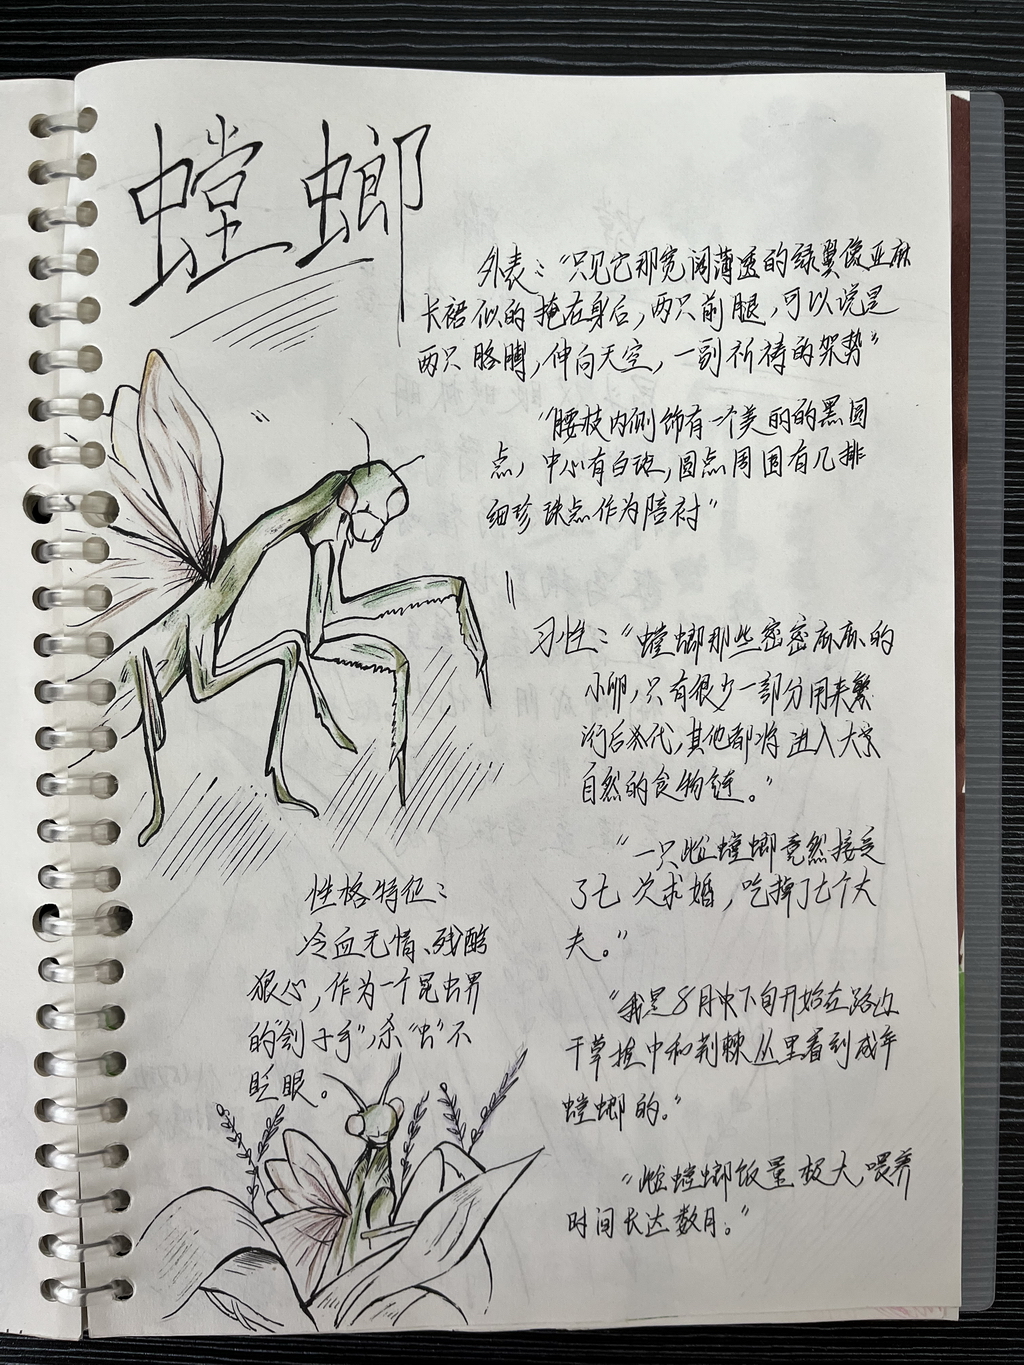 螳螂
外表："只见它那宽阔薄透的绿翼像亚麻
长裙似的掩在身后，两只前腿，可以说是
两只胳膊，伸向天空，一副祈祷的架势"
"腰肢内侧饰有一个美丽的的黑圆
点，中心有白斑，圆点周围有几排
细珍珠点作为陪衬"
习性："螳螂那些密密麻麻的
小卵，只有很少一部分用来繁
衍后代，其他都将进入大
自然的食物链。"
"一只雌螳螂竟然接受
了七次求婚，吃掉了七个丈
夫。"
"我是8月中下旬开始在路边
干草堆中和荆棘丛里看到成年
螳螂的。"
"雌螳螂饭量极大，喂养
时间长达数月。"
性格特征：
冷血无情、残酷
狠心，作为一个昆虫界
的"刽子手"，杀"虫"不
眨眼。